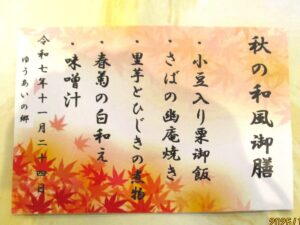 秋の和風御膳
・小豆入り栗御飯
・さばの幽庵焼き
・里芋とひじきの煮物
・春菊の白和え
・味噌汁
令和七年十一月二十四日
ゆうあいの郷